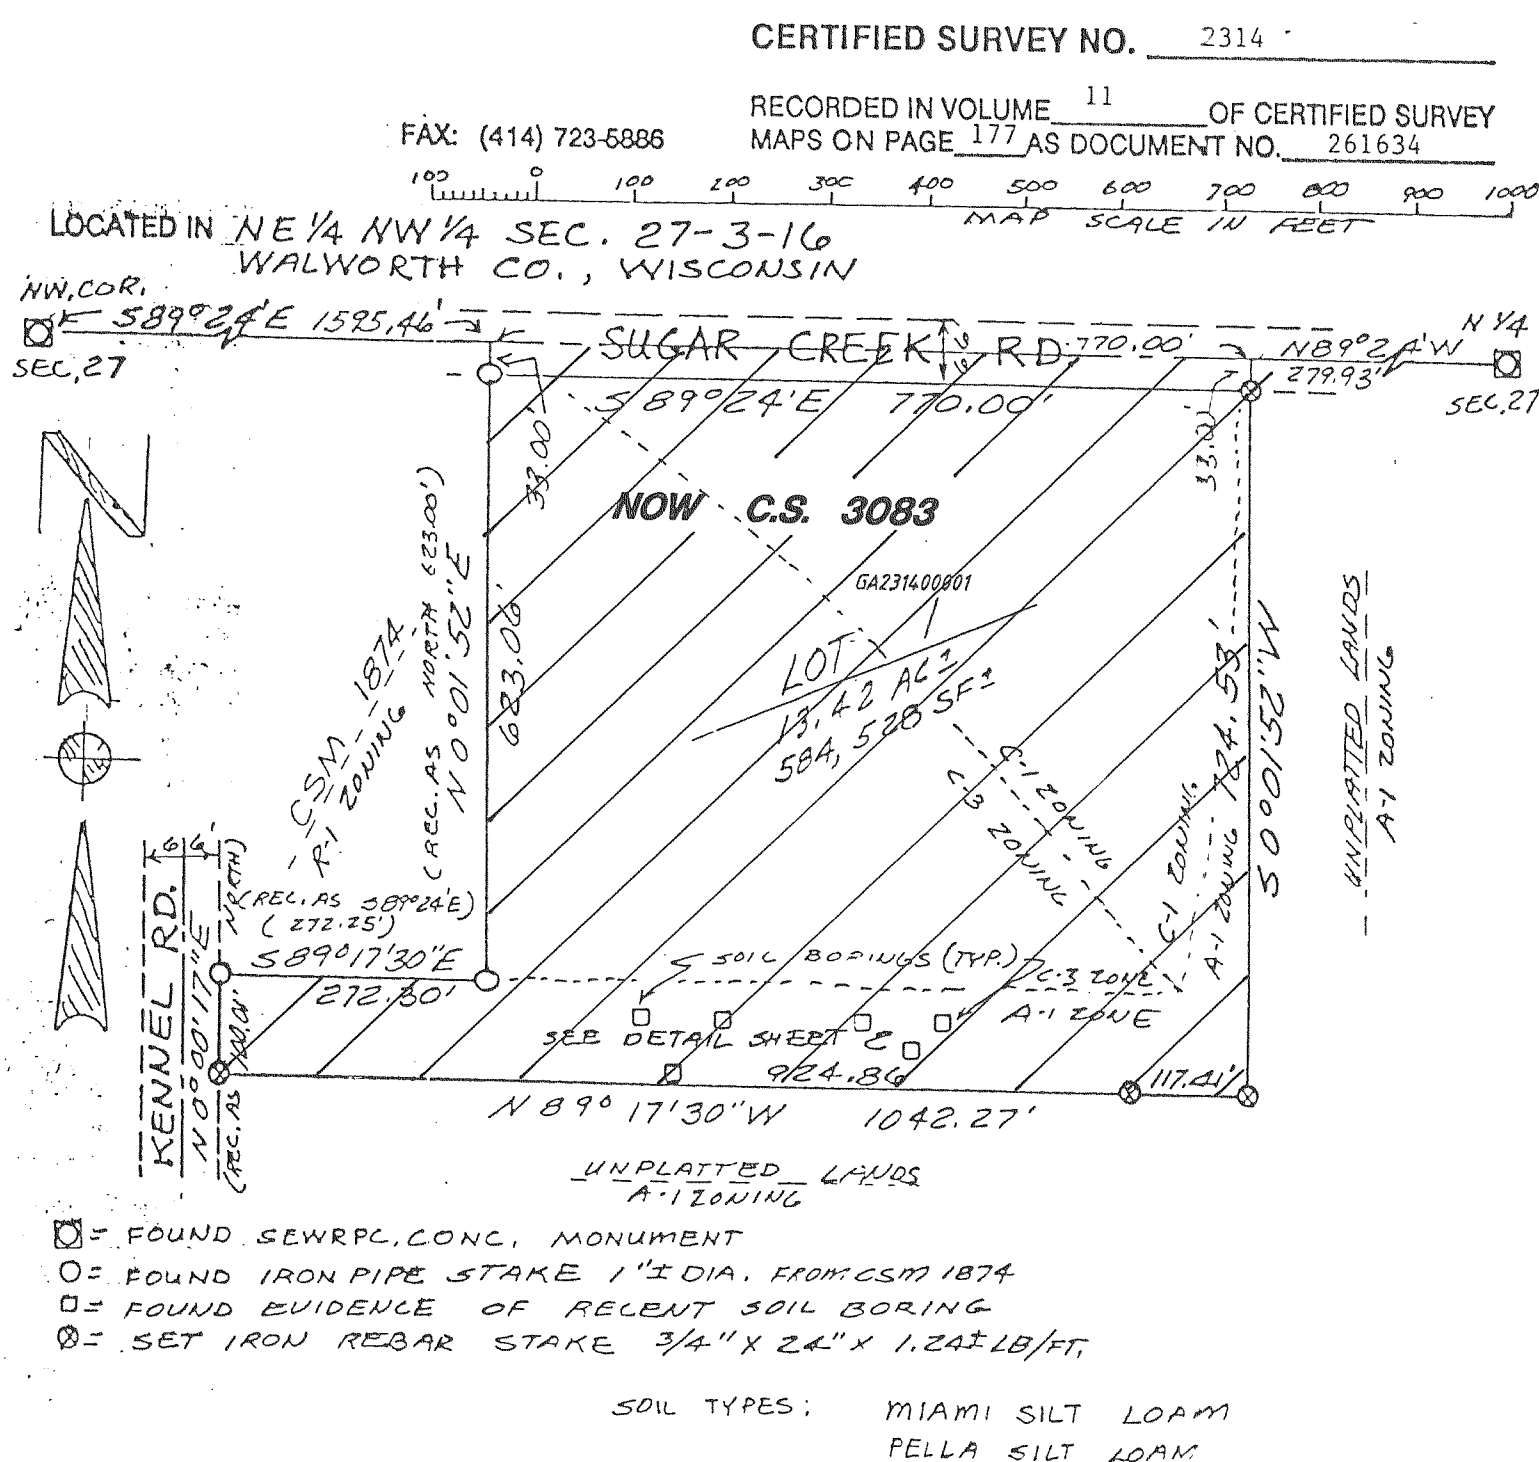 CERTIFIED SURVEY NO. 2314
RECORDED IN VOLUME 11 OF CERTIFIED SURVEY
FAX: (414) 723-5886
MAPS ON PAGE 177 AS DOCUMENT NO. 261634
100 0 100 200 300 400 500 600 700 800 900 1000
MAP SCALE IN FEET
LOCATED IN NE 1/4 NW 1/4 SEC. 27-3-16
WALWORTH CO., WISCONSIN
NW. COR.
SEC. 27
S89°24'E 1595.46'
SUGAR CREEK RD.
66'
770.00'
N89°24'W
279.93'
N 1/4
SEC. 27
S 89°24'E 770.00'
33.00'
33.00'
N
NOW C.S. 3083
GA231400001
LOT 1
13.42 AC±
584,528 SF±
(REC. AS NORTH 623.00')
N 0°01'52"E
623.06'
CSM 1874
R-1 ZONING
C-1 ZONING
C-3 ZONING
C-1 ZONING
A-1 ZONING
724.53'
S 0°01'52"W
UNPLATTED LANDS
A-1 ZONING
66'
KENNEL RD.
N 0°00'17"E
(REC. AS NORTH)
100.01'
(REC. AS S89°24'E)
(272.25')
S89°17'30"E
272.30'
SOIL BORINGS (TYP.)
C-3 ZONE
A-1 ZONE
SEE DETAIL SHEET 2
924.86
117.41'
N 89° 17'30"W 1042.27'
UNPLATTED LANDS
A-1 ZONING
= FOUND SEWRPC. CONC. MONUMENT
= FOUND IRON PIPE STAKE 1"± DIA. FROM CSM 1874
= FOUND EVIDENCE OF RECENT SOIL BORING
= SET IRON REBAR STAKE 3/4" X 24" X 1.24± LB/FT.
SOIL TYPES: MIAMI SILT LOAM
PELLA SILT LOAM